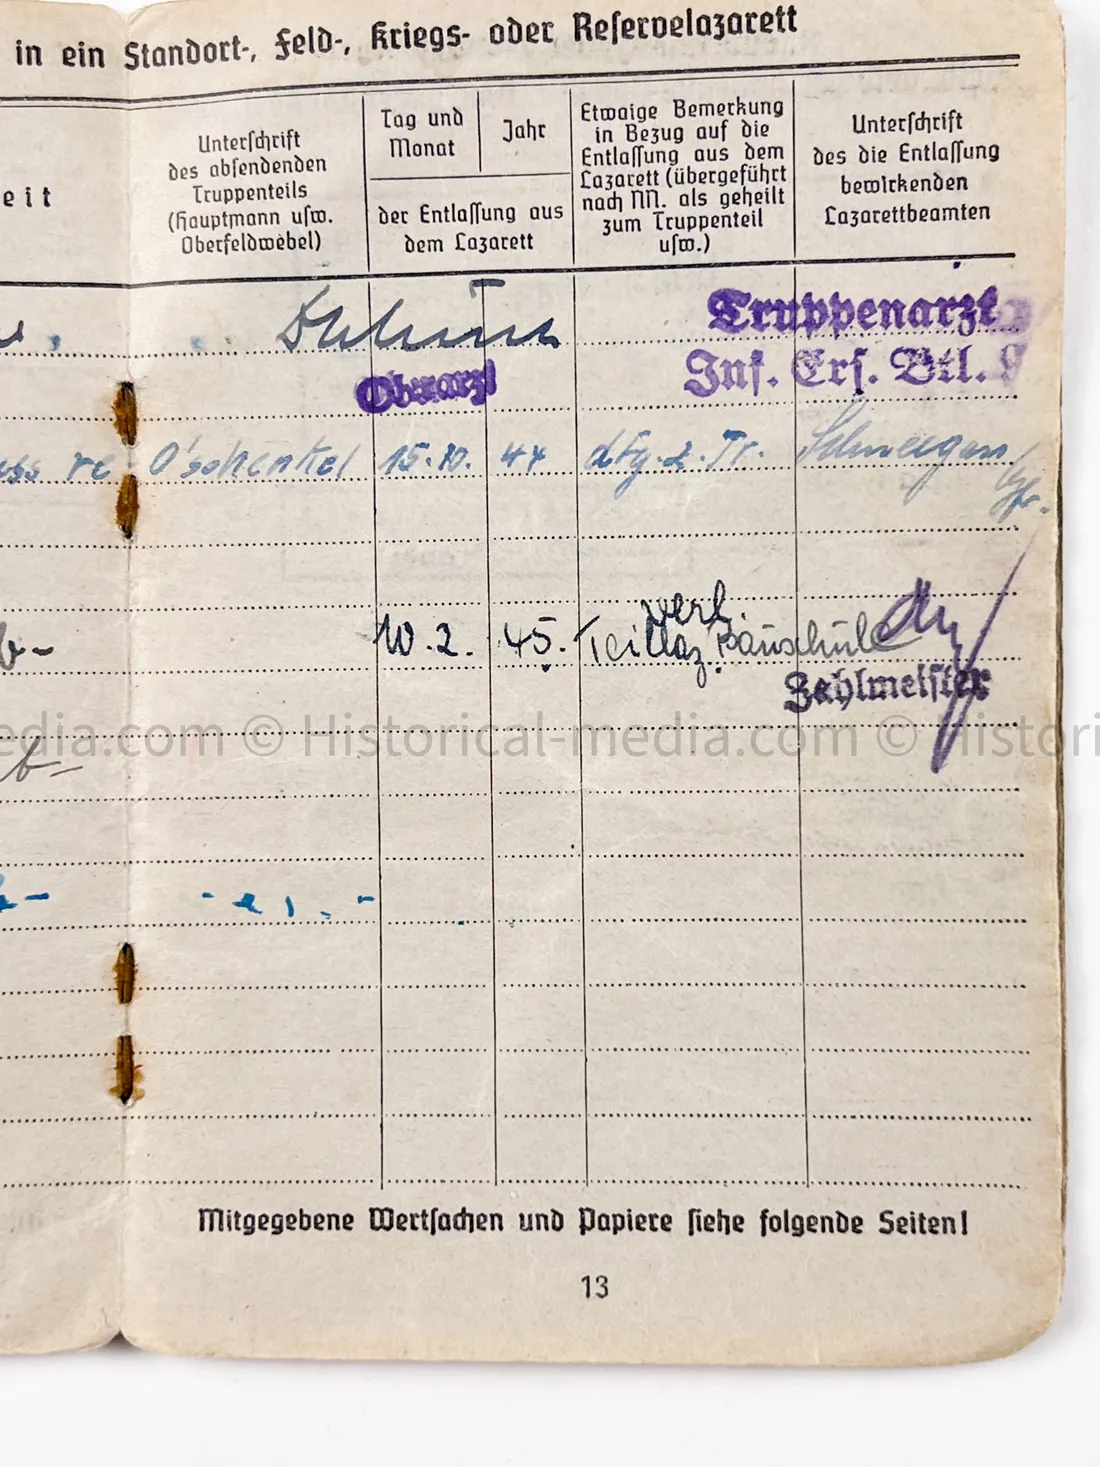 in ein Standort-, Feld-, Kriegs- oder Reservelazarett
eit
Unterschrift
des absendenden
Truppenteils
(Hauptmann usw.
Oberfeldwebel)
Tag und
Monat
Jahr
der Entlassung aus
dem Lazarett
Etwaige Bemerkung
in Bezug auf die
Entlassung aus dem
Lazarett (übergeführt
nach NN. als geheilt
zum Truppenteil
usw.)
Unterschrift
des die Entlassung
bewirkenden
Lazarettbeamten
Truppenarzt
Inf. Ers. Btl.
Oberarzt
re O'schenkel 15.10. 44 dfg. z. Tr.
verl.
10.2. 45. Teillaz. Bauschule
Zahlmeister
edia.com © Historical-media.com © Histori
Mitgegebene Wertsachen und Papiere siehe folgende Seiten!
13